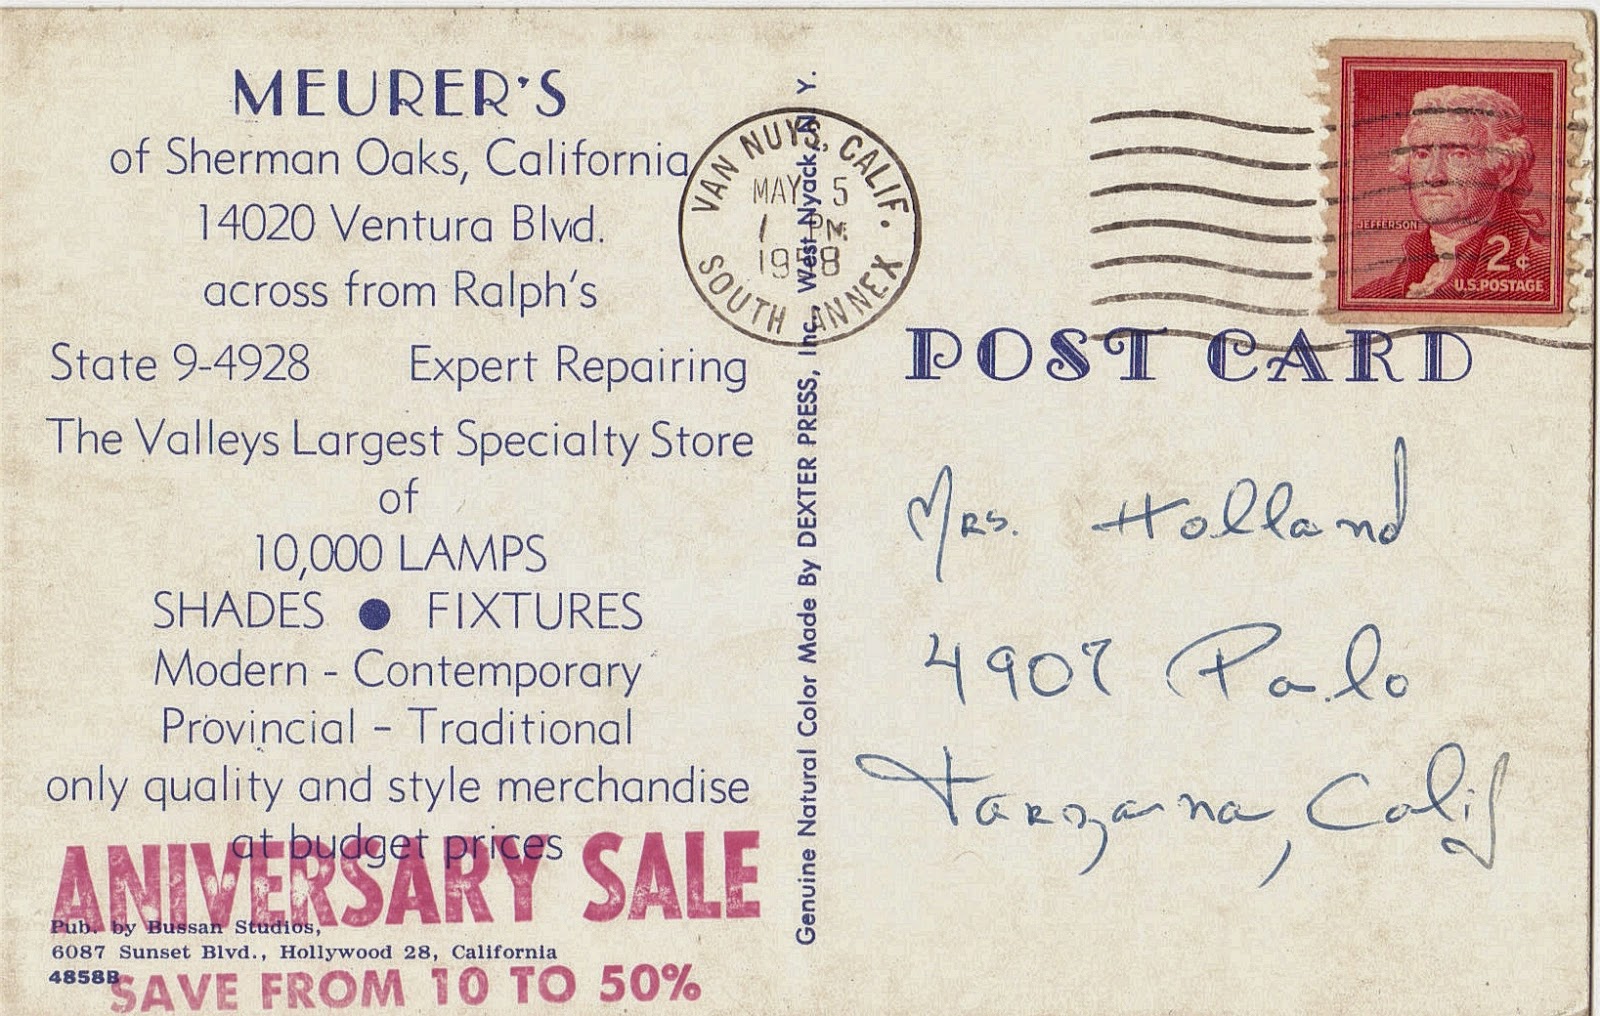 MEURER'S
of Sherman Oaks, California
14020 Ventura Blvd.
across from Ralph's
State 9-4928 Expert Repairing
The Valleys Largest Specialty Store
of
10,000 LAMPS
SHADES ● FIXTURES
Modern - Contemporary
Provincial - Traditional
only quality and style merchandise
at budget prices
ANIVERSARY SALE
Pub. by Bussan Studios,
6087 Sunset Blvd., Hollywood 28, California
4858B
SAVE FROM 10 TO 50%
Genuine Natural Color Made By DEXTER PRESS, Inc. West Nyack, N. Y.
VAN NUYS, CALIF.
MAY 5
1 PM
1958
SOUTH ANNEX
JEFFERSON
2¢
U.S. POSTAGE
POST CARD
Mrs. Holland
4907 Palo
Tarzana, Calif